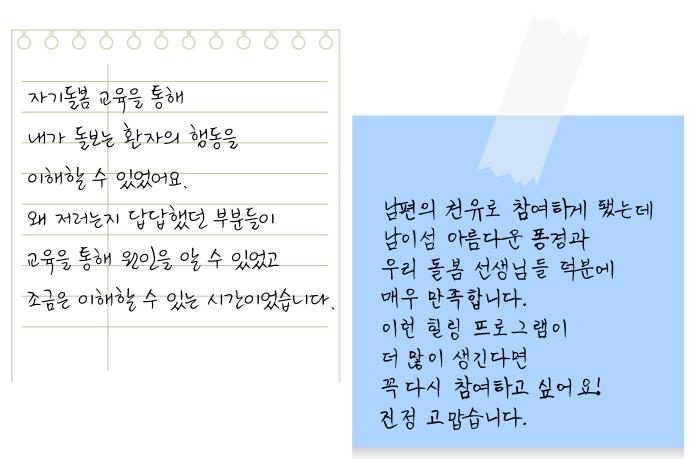 자기돌봄 교육을 통해
내가 돌보는 환자의 행동을
이해할 수 있었어요.
왜 저러는지 답답했던 부분들이
교육을 통해 원인을 알 수 있었고
조금은 이해할 수 있는 시간이었습니다.
남편의 권유로 참여하게 됐는데
남이섬 아름다운 풍경과
우리 돌봄 선생님들 덕분에
매우 만족합니다.
이런 힐링 프로그램이
더 많이 생긴다면
꼭 다시 참여하고 싶어요!
진정 고맙습니다.